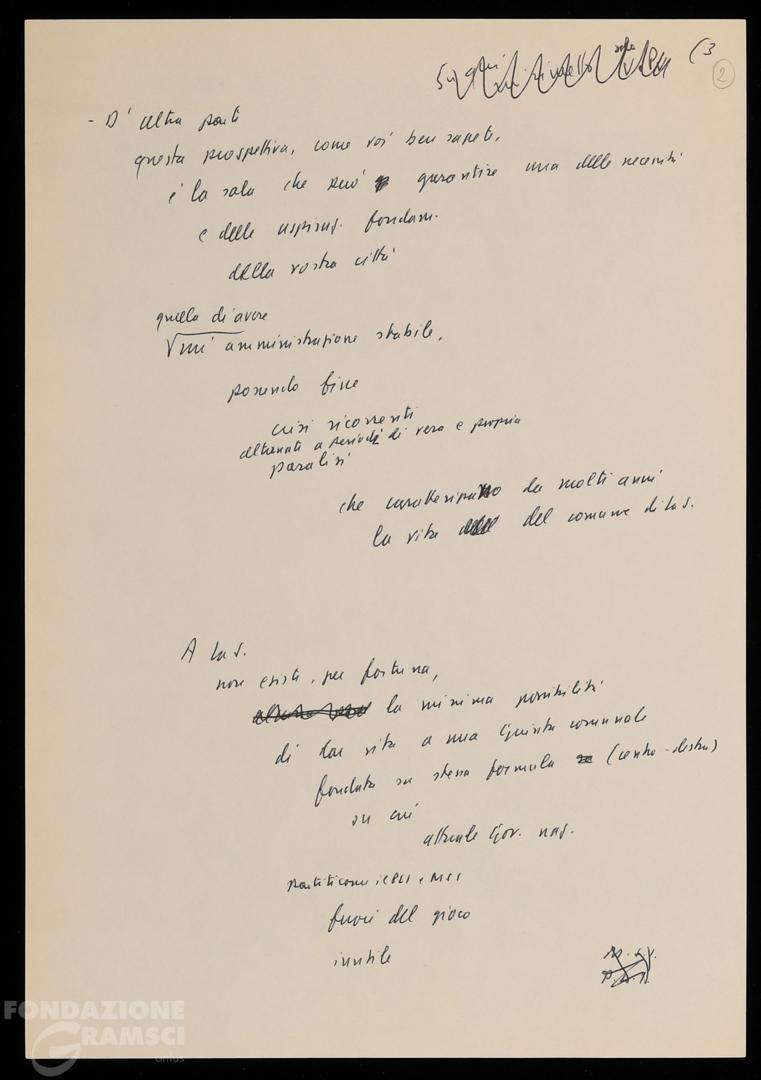 (3
2
- D'altra parte
questa prospettiva, come voi ben sapete,
è la sola che può garantire una delle necessità
e delle aspiraz. fondam.
della vostra città
quella di avere
un'amministrazione stabile,
ponendo fine
crisi ricorrenti
alternati a periodi di vera e propria
paralisi
che caratterizzano da molti anni
la vita del comune di
A
non esiste, per fortuna,
la minima possibilità
di dar vita a una Giunta comunale
fondata su stessa formula (centro-destra)
su cui
attuale Gov. naz.
partiti come il PLI e MSI
fuori del gioco
inutile
FONDAZIONE
GRAMSCI
onlus